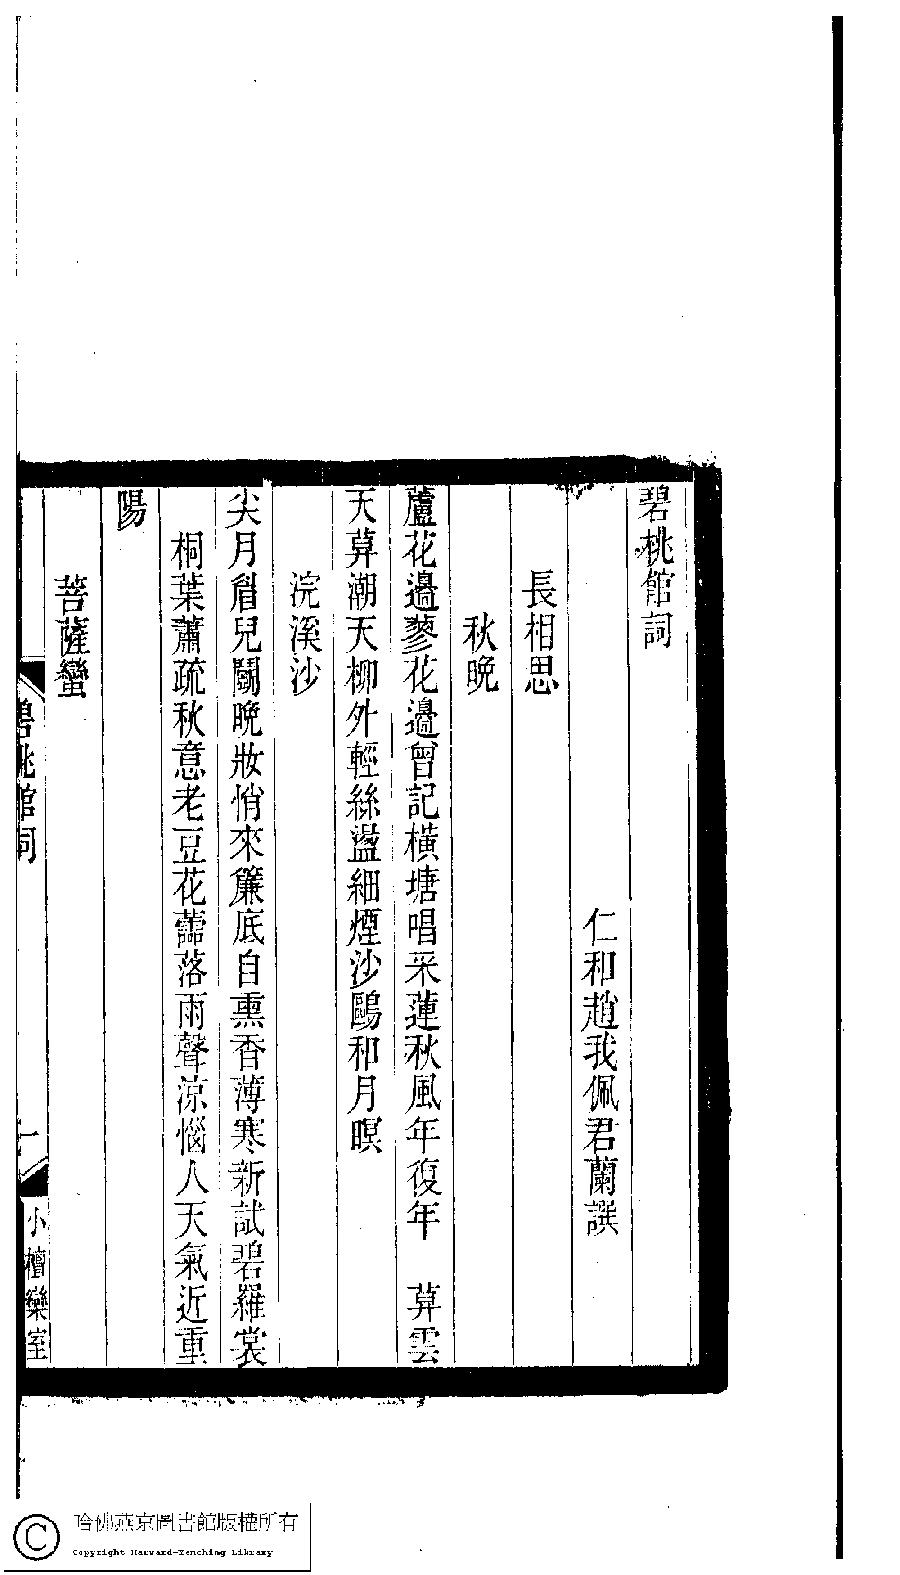 碧桃館詞
仁和趙我佩君蘭譔
長相思
秋晚
蘆花邊蓼花邊曾記橫塘唱采蓮秋風年復年　莫雲
天莫潮天柳外輕絲盪細煙沙鷗和月暝
浣溪沙
尖月眉兒鬭晚妝悄來簾底自熏香薄寒新試碧羅裳
桐葉蕭疏秋意老豆花蘦落雨聲涼惱人天氣近重
陽
菩薩蠻
碧桃館詞
一
小檀欒室
哈佛燕京圖書館版權所有
Copyright Harvard-Yenching Library